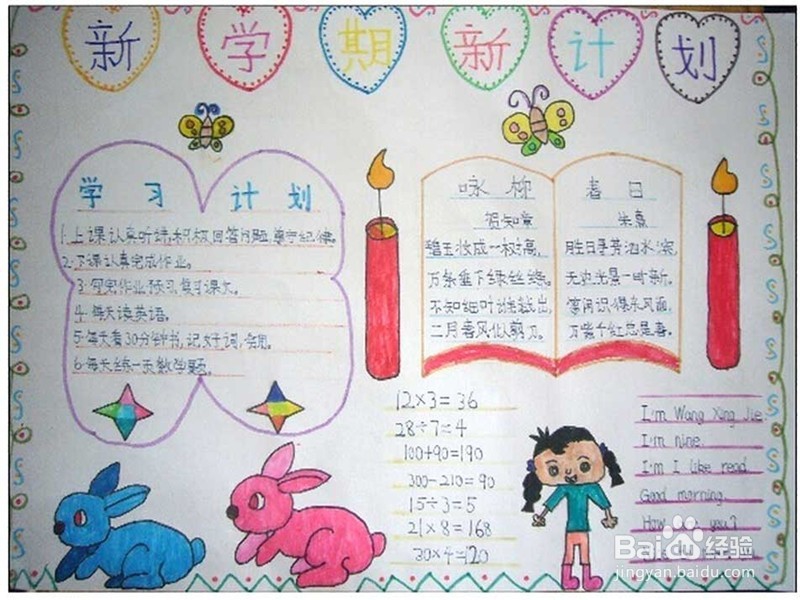 新学期新计划
学习计划
1.上课认真听讲,积极回答问题,遵守纪律。
2.下课认真完成作业。
3.写完作业预习、复习课文。
4.每天读英语。
5.每天看30分钟书,记好词,
6.每天练一页数学题。
咏柳
贺知章
碧玉妆成一树高,
万条垂下绿丝绦。
不知细叶谁裁出,
二月春风似剪刀。
春日
朱熹
胜日寻芳泗水滨,
无边光景一时新。
等闲识得东风面,
万紫千红总是春。
12×3=36
28÷7=4
100+90=190
300-210=90
15÷3=5
21×8=168
30×4=120
I'm Wang Xing Jie.
I'm nine.
I'm I like read.
Good morning.
How you?
Baidu经验
jingyan.baidu.com